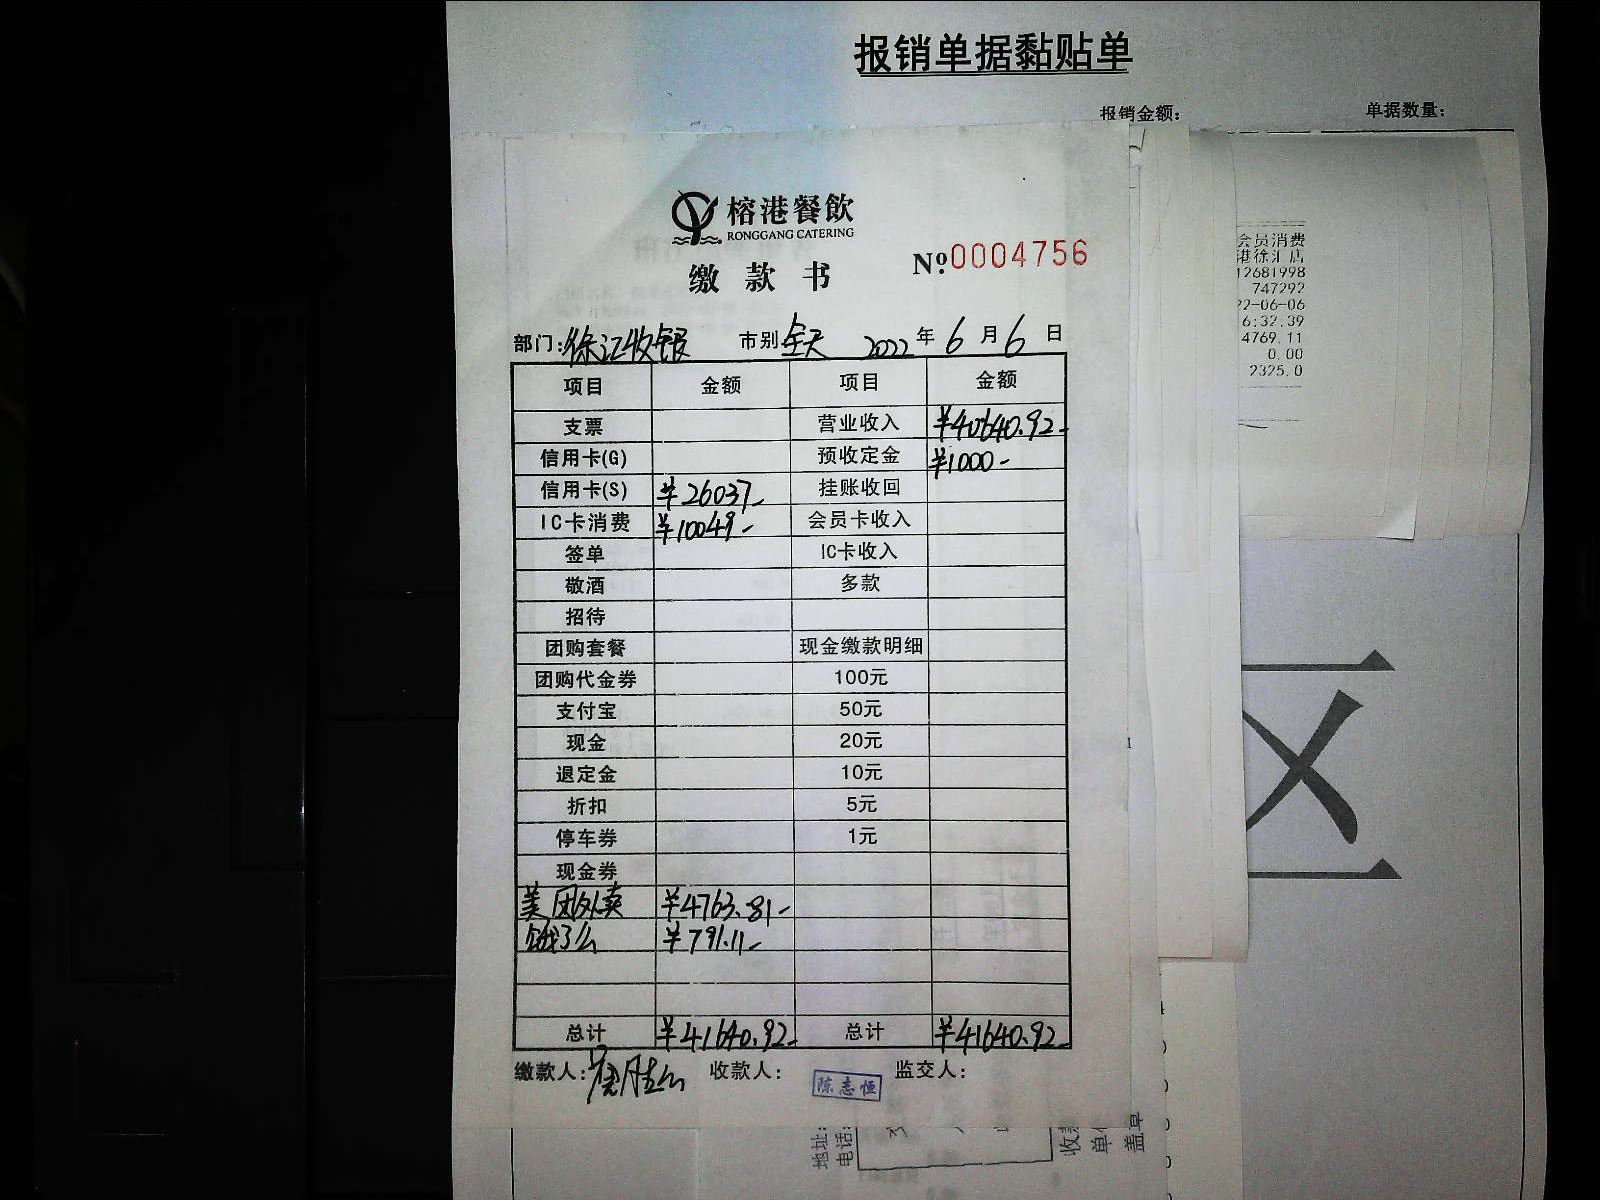 报销单据黏贴单
报销金额： 单据数量：
榕港餐飲
RONGGANG CATERING
缴款书 №0004756
部门：徐汇收银 市别 全天 2022年6月6日
项目 金额 项目 金额
支票 营业收入 ¥40640.92-
信用卡(G) 预收定金 ¥1000-
信用卡(S) ¥26037- 挂账收回
IC卡消费 ¥10049- 会员卡收入
签单 IC卡收入
敬酒 多款
招待
团购套餐 现金缴款明细
团购代金券 100元
支付宝 50元
现金 20元
退定金 10元
折扣 5元
停车券 1元
现金券
美团外卖 ¥4763.81-
饿了么 ¥791.11-
总计 ¥41640.92- 总计 ¥41640.92-
缴款人： 收款人： 陈志恒 监交人：
会员消费
港徐汇店
12681998
747292
22-06-06
6:32:39
4769.11
0.00
2325.0
地址：
电话：
收款
单位
盖章